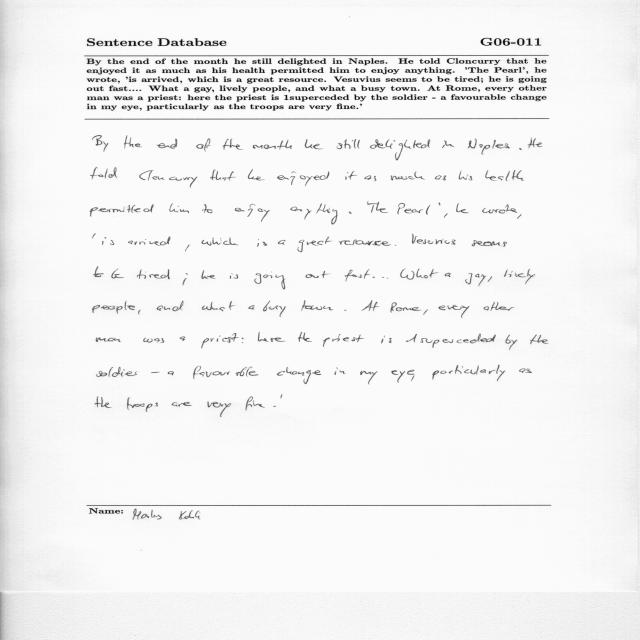 Sentence Database G06-011
By the end of the month he still delighted in Naples. He told Cloncurry that he
enjoyed it as much as his health permitted him to enjoy anything. 'The Pearl', he
wrote, 'is arrived, which is a great resource. Vesuvius seems to be tired; he is going
out fast.... What a gay, lively people, and what a busy town. At Rome, every other
man was a priest: here the priest is 1superceded by the soldier - a favourable change
in my eye, particularly as the troops are very fine.'
By the end of the month he still delighted in Naples. He
told Cloncurry that he enjoyed it as much as his health
permitted him to enjoy anything. 'The Pearl', he wrote,
'is arrived, which is a great resource. Vesuvius seems
to be tired; he is going out fast... What a gay, lively
people, and what a busy town. At Rome, every other
man was a priest: here the priest is 1superceded by the
soldier - a favourable change in my eye, particularly as
the troops are very fine.'
Name: